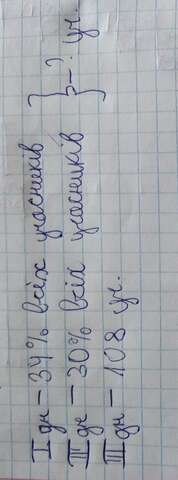 I дн – 34% всіх учасників } – ? уч.
II дн – 30% всіх учасників
III дн – 108 уч.